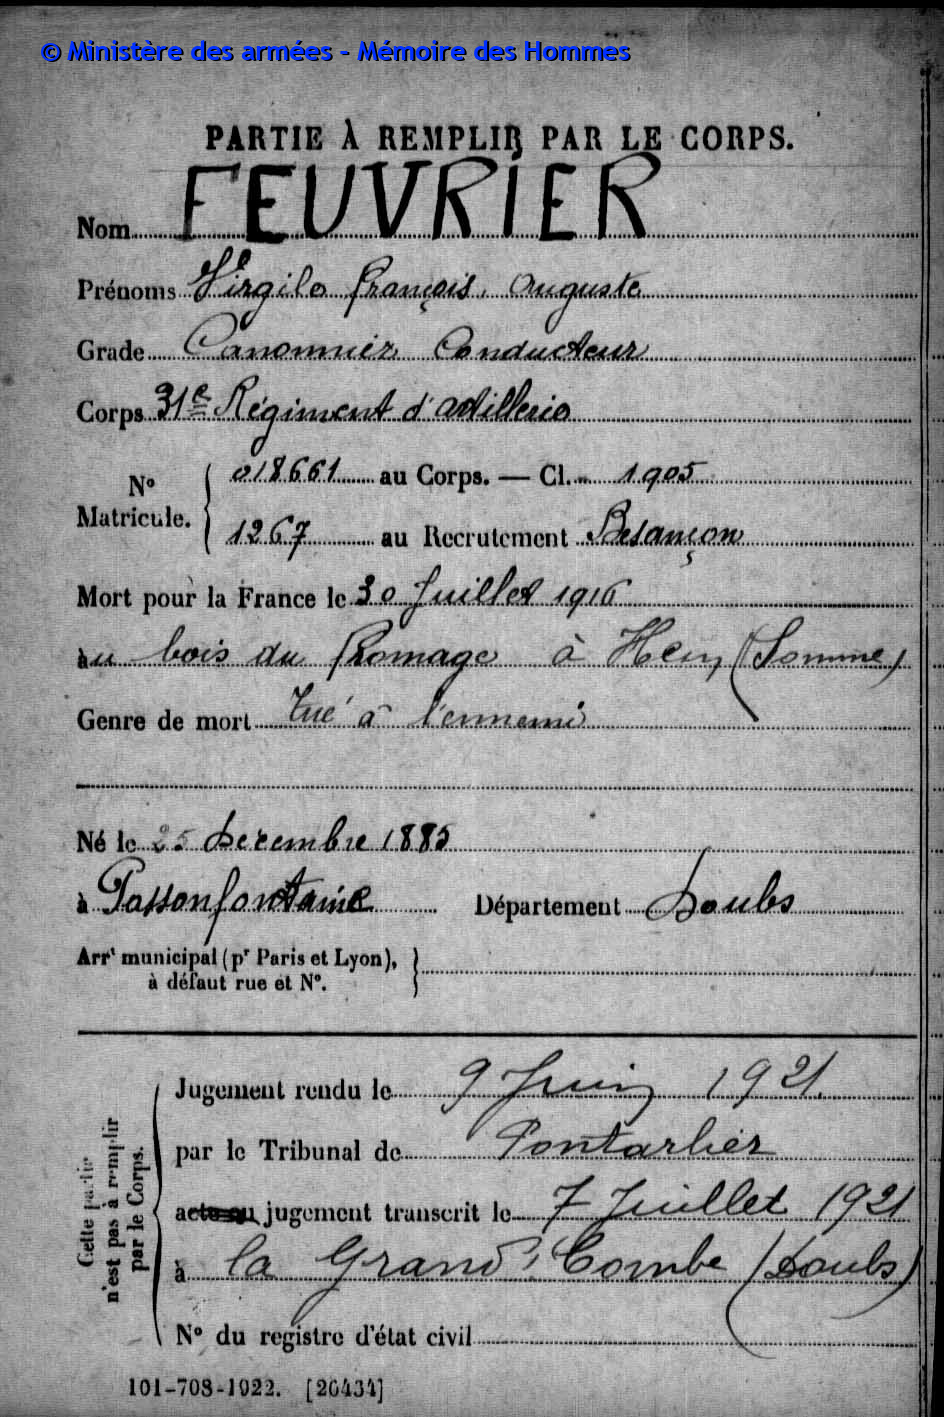 © Ministère des armées - Mémoire des Hommes
PARTIE À REMPLIR PAR LE CORPS.
Nom FEUVRIER
Prénoms Virgile François Auguste
Grade Canonnier Conducteur
Corps 31e Régiment d'artillerie
No Matricule. { 018661 au Corps. — Cl. 1905
1267 au Recrutement Besançon
Mort pour la France le 30 Juillet 1916
au bois du Fromage à Hem (Somme)
Genre de mort Tué à l'ennemi
Né le 25 Décembre 1885
à Passonfontaine Département Doubs
Arrt municipal (pr Paris et Lyon),
à défaut rue et No.
Cette partie n'est pas à remplir par le Corps.
Jugement rendu le 9 Juin 1921.
par le Tribunal de Pontarlier
acte ou jugement transcrit le 7 Juillet 1921
à la Grand'Combe (Doubs)
No du registre d'état civil
101-708-1922. [26434]